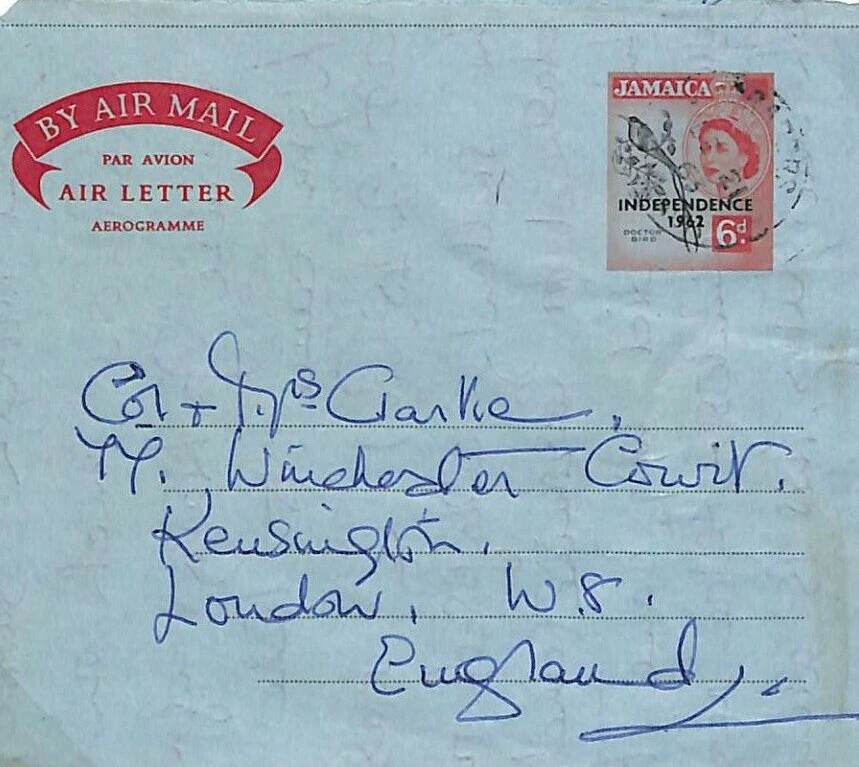 BY AIR MAIL
PAR AVION
AIR LETTER
AEROGRAMME
JAMAICA
INDEPENDENCE
1962
DOCTOR
BIRD
6d.
Col + Mrs Clarke,
Winchester Court.
Kensington.
London, W.8.
England